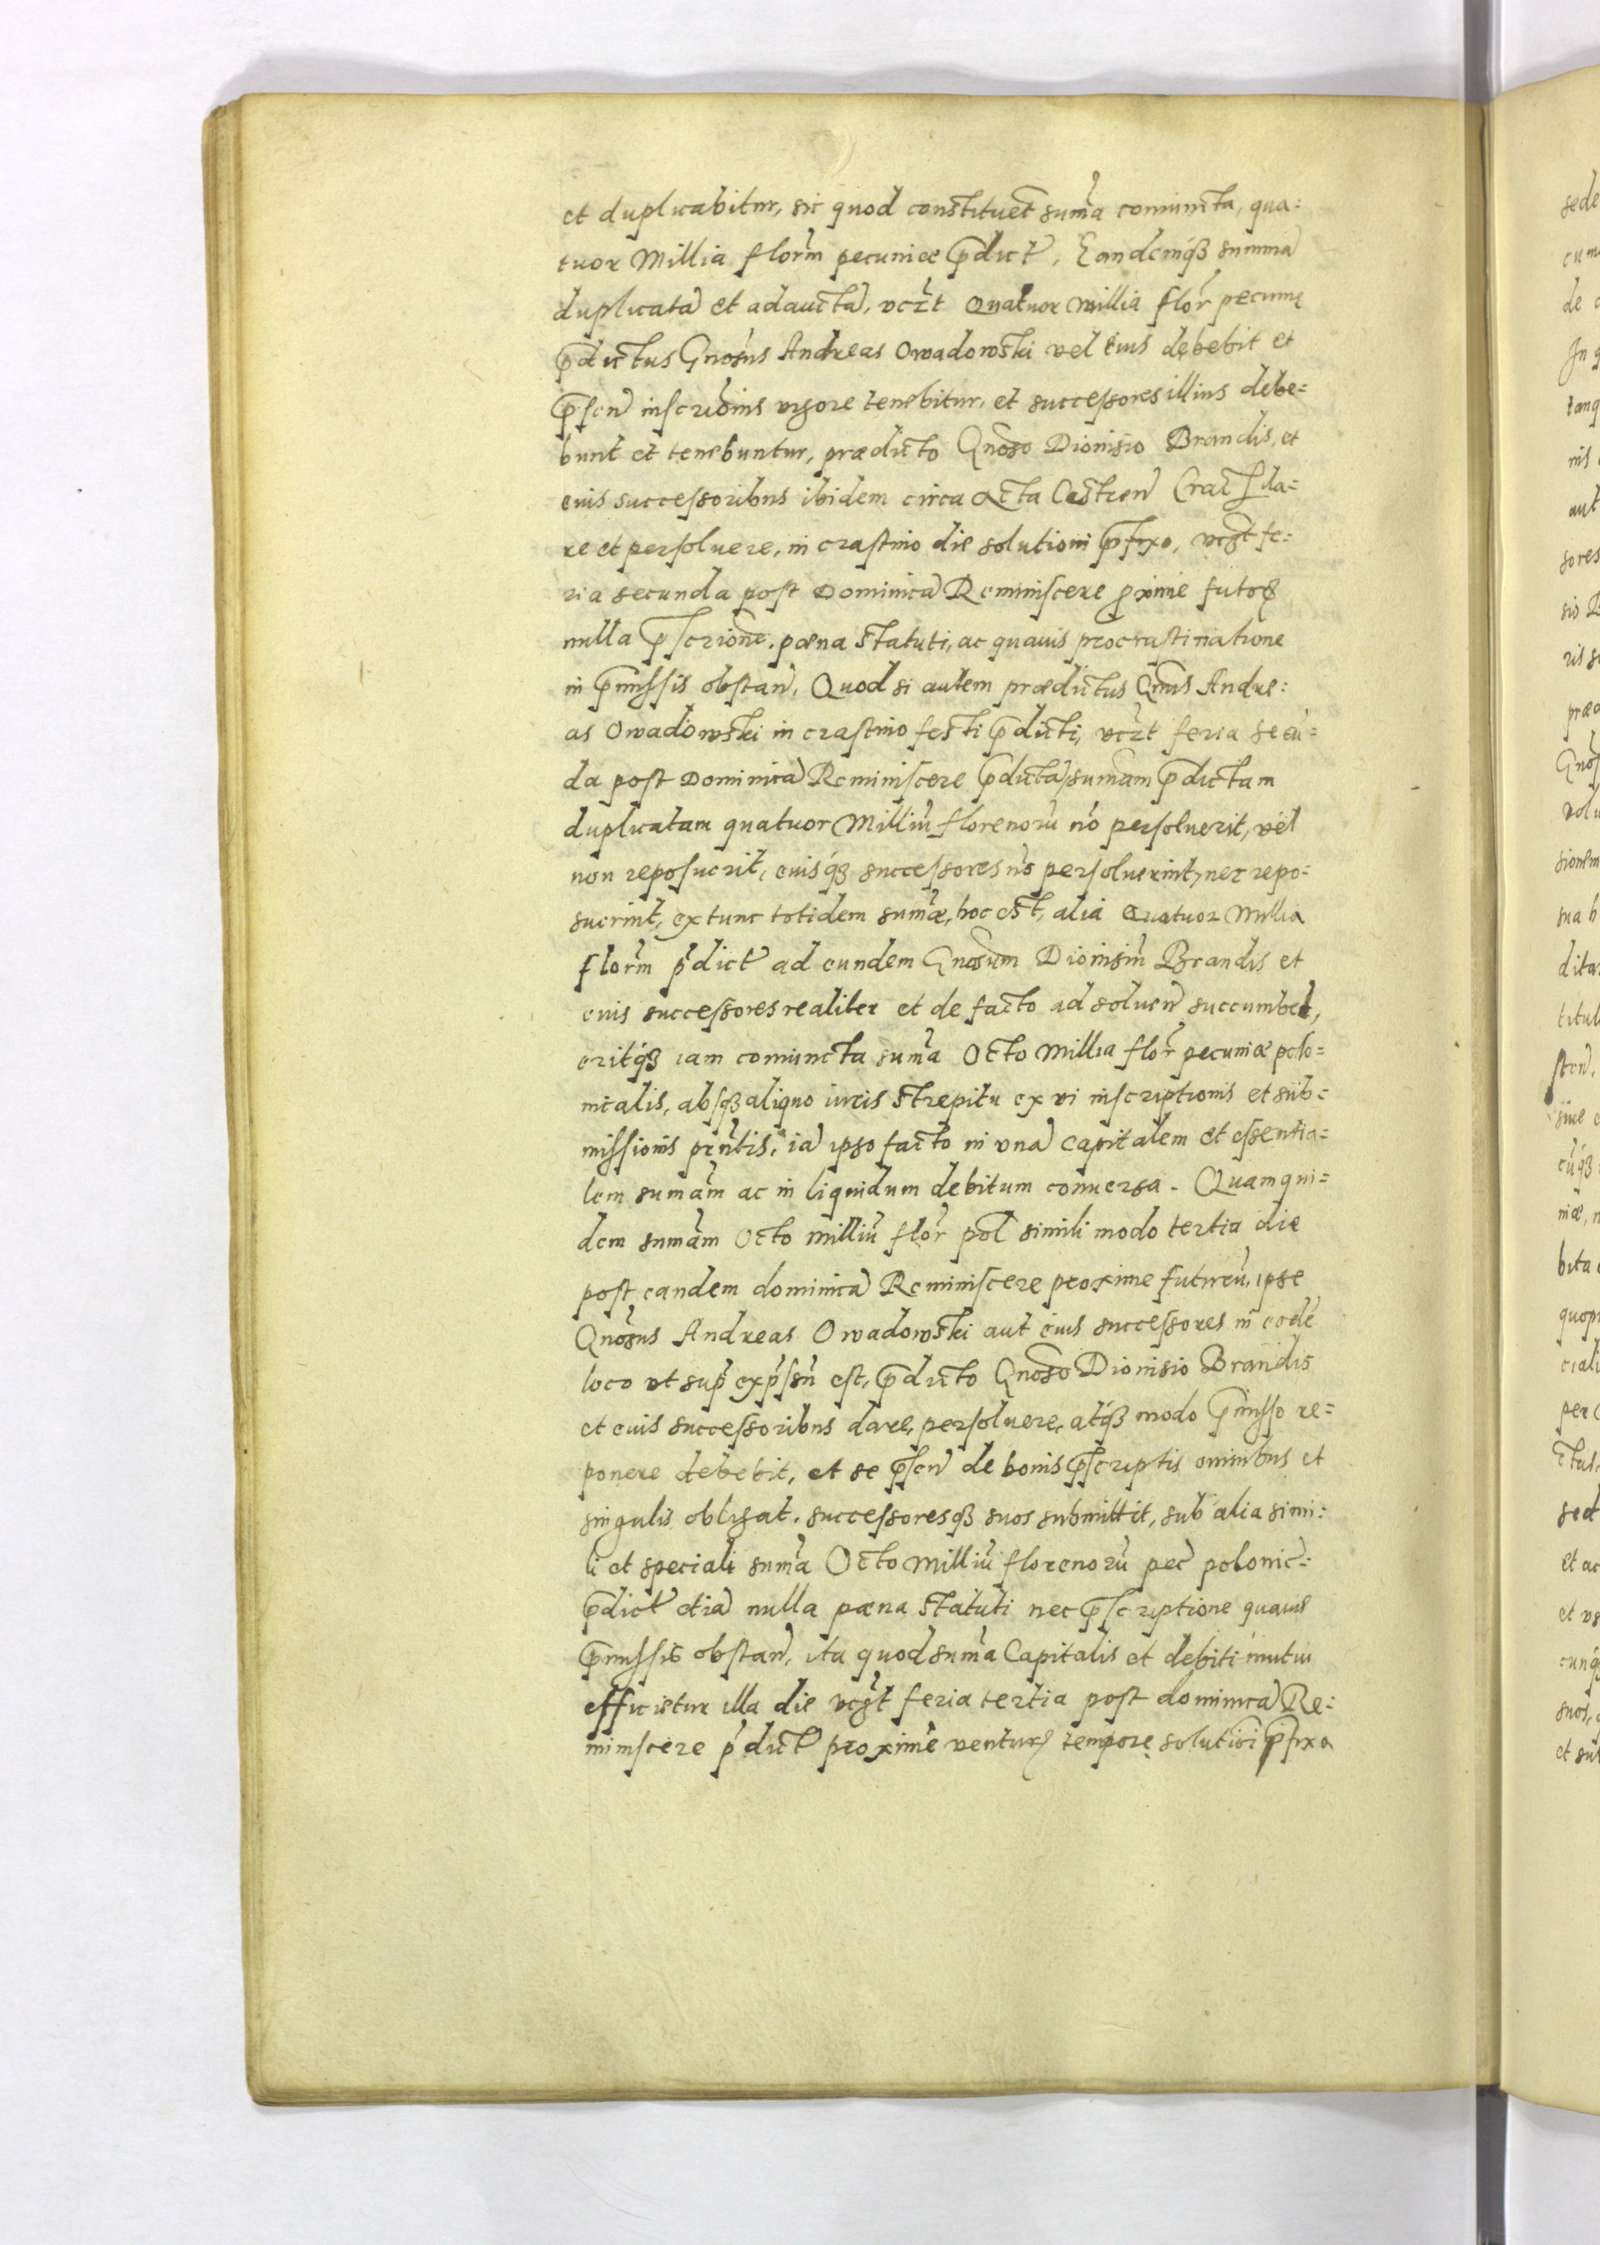 et duplicabitur, sic quod constituet sum̃a coniuncta, qua:
tuor Millia florm̃ pecuniæ p̃dict, Eandemq́ꝫ summã
duplicatã et adauctã, vcz̃t Quatuor millia flor̃ pecuniæ
p̃dictus Gnosus Andreas Owadowski vel eius debebit et
p̃sen̄ inscriõnis vigore tenebitur, et successores illius debe-
bunt et tenebuntur, prædicto Gnoso Dionisio Brandis, et
euis successoribus ibidem circa Acta Castren̄ Crac̃ da-
re et persoluere, in crastino die solutioni p̃fixo, vcz̃t fe-
ria secunda post Dominicã Reminiscere proxime futoꝫ
nulla p̃scriõne. pæna statuti, ac quauis procrastinatione
in p̃missis obstan̄, Quod si autem prædictus Gnus Andre-
as Owadowski in crastino festi p̃dicti, vcz̃t feria secũ-
da post Dominicã Reminiscere p̃dictã, sum̃am p̃dictam
duplicatam quatuor Milliũ florenorũ nõ persoluerit, vel
non reposuerit, euisq́ꝫ successores nõ persoluerint, nec repo-
suerint, extunc totidem sum̃æ, hoc est, alia Quatuor Millia
florm̃ p̃dict ad eundem Gnosum Dionisiũ Brandis et
euis successores realiter et de facto ad soluen̄ succumbet,
eritq́ꝫ iam coniuncta sum̃a Octo Millia flor̃ pecuniæ polo-
nicalis, absqꝫ aliquo iuris strepitu ex vi inscriptionis et sub-
missionis pñtis, iã ipso facto in vnã Capitalem et essentia-
lem sum̃am ac in liquidum debitum conuersa. Quamqui-
dem sum̃am Octo milliũ flor̃ pol simili modo tertia die
post eandem dominicã Reminiscere proxime futurũ, ipse
Gnosus Andreas Owadowski aut euis successores in eodẽ
loco vt sup̃ exp̃ssũ est, p̃dicto Gnoso Dionisio Brandis
et euis successoribus dare, persoluere, atq́ꝫ modo p̃misso re-
ponere debebit, et se p̃sen̄ de bonis p̃scriptis omnibus et
singulis obligat. successoresqꝫ suos submittit, sub alia simi-
li et speciali sum̃a Octo Milliũ florenorũ pec̃ polonic̃-
p̃dict etiã nulla pæna statuti nec p̃scriptione quauis
p̃missis obstan̄, ita quod sum̃a Capitalis et debiti mutui
efficietur illa die vcz̃t feria tertia post dominicã Re-
miniscere p̃dict proxime ventur̃ tempore solutioni p̃fixo